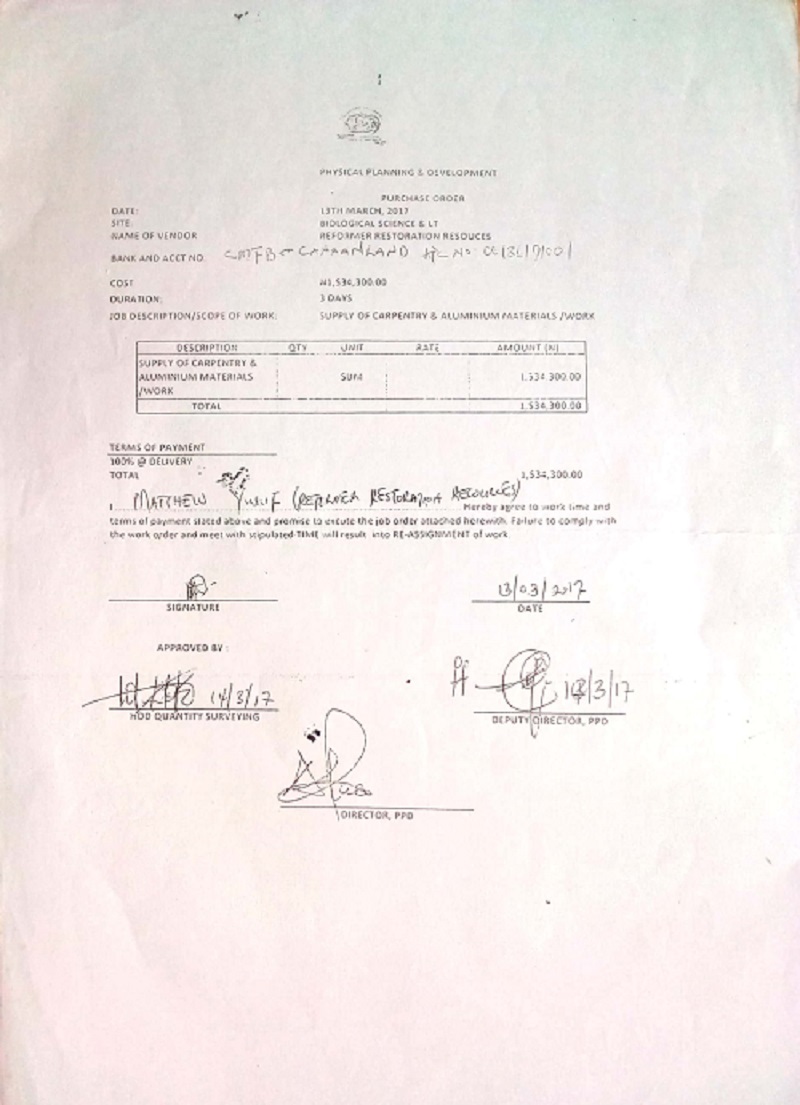 PHYSICAL PLANNING & DEVELOPMENT
PURCHASE ORDER
DATE: 13TH MARCH, 2017
SITE: BIOLOGICAL SCIENCE & LT
NAME OF VENDOR REFORMER RESTORATION RESOUCES
BANK AND ACCT NO.
COST ₦1,534,300.00
DURATION: 3 DAYS
JOB DESCRIPTION/SCOPE OF WORK: SUPPLY OF CARPENTRY & ALUMINIUM MATERIALS /WORK
DESCRIPTION QTY UNIT RATE AMOUNT (N)
SUPPLY OF CARPENTRY &
ALUMINIUM MATERIALS SUM 1,534,300.00
/WORK
TOTAL 1,534,300.00
TERMS OF PAYMENT
100% @ DELIVERY
TOTAL 1,534,300.00
I MATTHEW YUSUF (REFORMER RESTORATION RESOURCES) Hereby agree to work time and
terms of payment stated above and promise to excute the job order attached herewith. Failure to comply with
the work order and meet with stipulated TIME will result into RE-ASSIGNMENT of work
13/03/2017
SIGNATURE DATE
APPROVED BY :
14/3/17 /3/17
HOD QUANTITY SURVEYING DEPUTY DIRECTOR, PPD
DIRECTOR, PPD